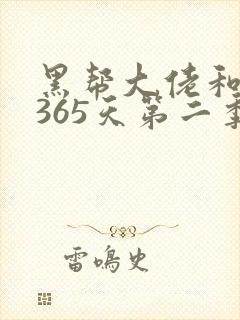 黑帮大佬和
365天第二季
雷鸣史